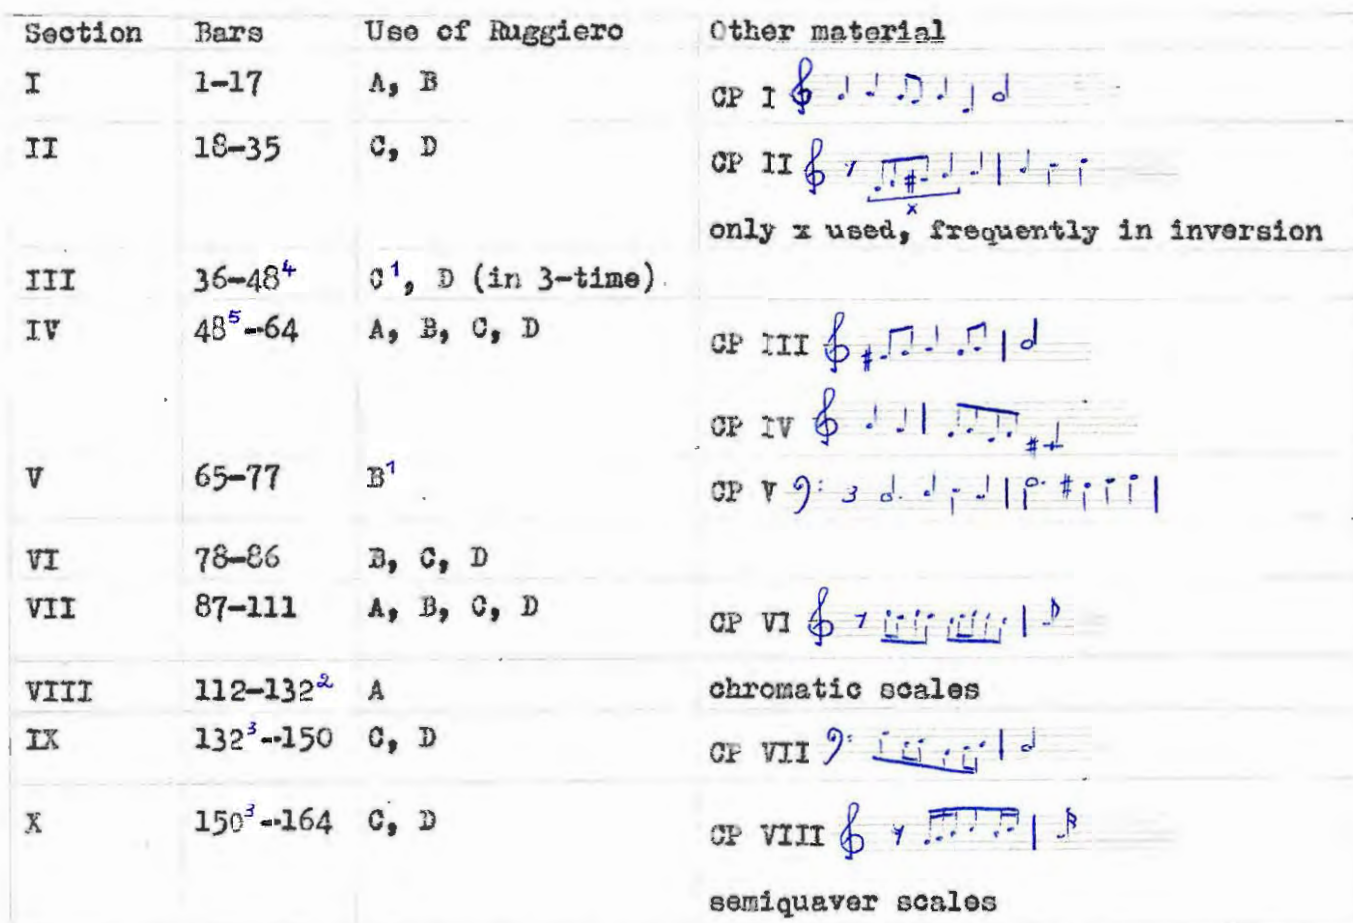 Section Bars Use of Ruggiero Other material
I 1-17 A, B CP I
II 18-35 C, D CP II
x
only x used, frequently in inversion
III 36-48⁴ C¹, D (in 3-time)
IV 48⁵--64 A, B, C, D CP III
CP IV
V 65-77 B¹ CP V 3
VI 78-86 B, C, D
VII 87-111 A, B, C, D CP VI
VIII 112-132² A chromatic scales
IX 132³--150 C, D CP VII
X 150³--164 C, D CP VIII
semiquaver scales